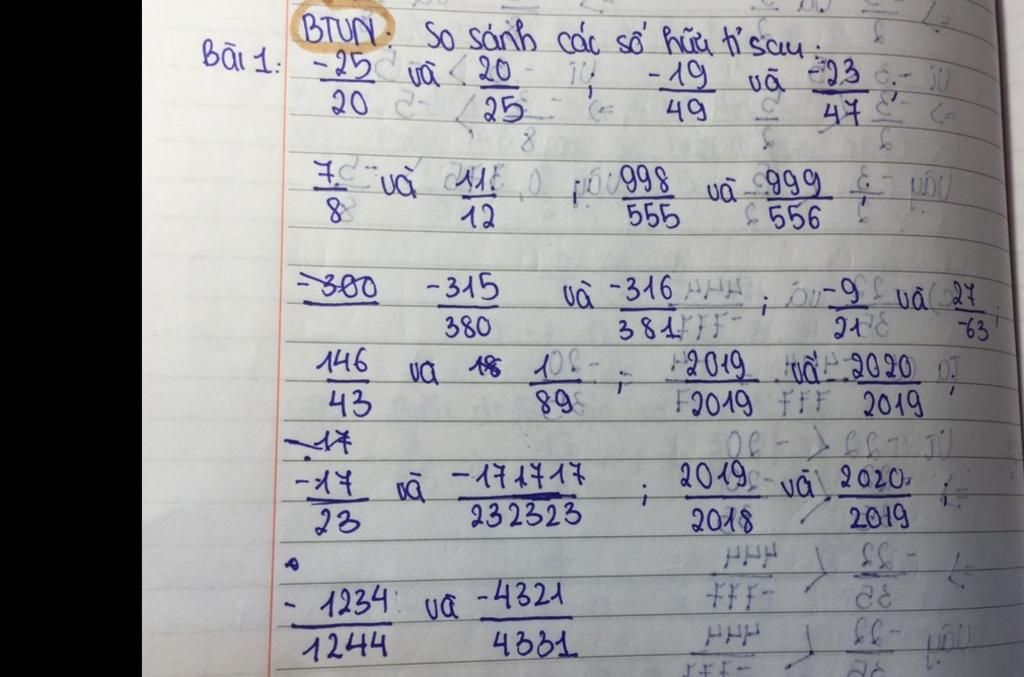 BTVN: So sánh các số hữu tỉ sau:
Bài 1: -25/20 và 20/25 ; -19/49 và -23/47 ;
7/8 và 11/12 ; 998/555 và 999/556
-300 -315/380 và -316/381 ; -9/21 và 27/-63 ;
146/43 và 18 1/89 ; -2019/2019 và -2020/2019 ;
-17
-17/23 và -171717/232323 ; 2019/2018 và 2020/2019 ;
-1234/1244 và -4321/4331